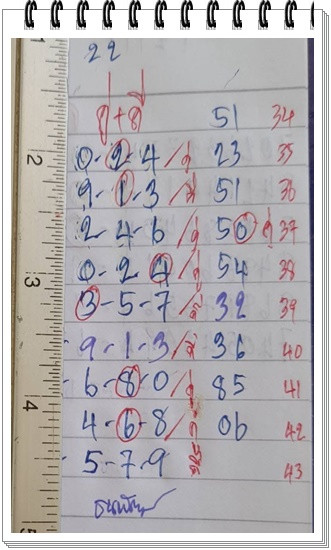 22
ปี+ปี
51 34
0-2-4/ 23 35
9-1-3/ 51 36
2-4-6/ 50 37
0-2-4/ 54 38
3-5-7/ 32 39
9-1-3/ 36 40
6-8-0/ 85 41
4-6-8/ 06 42
5-7-9 43
2
3
4
5